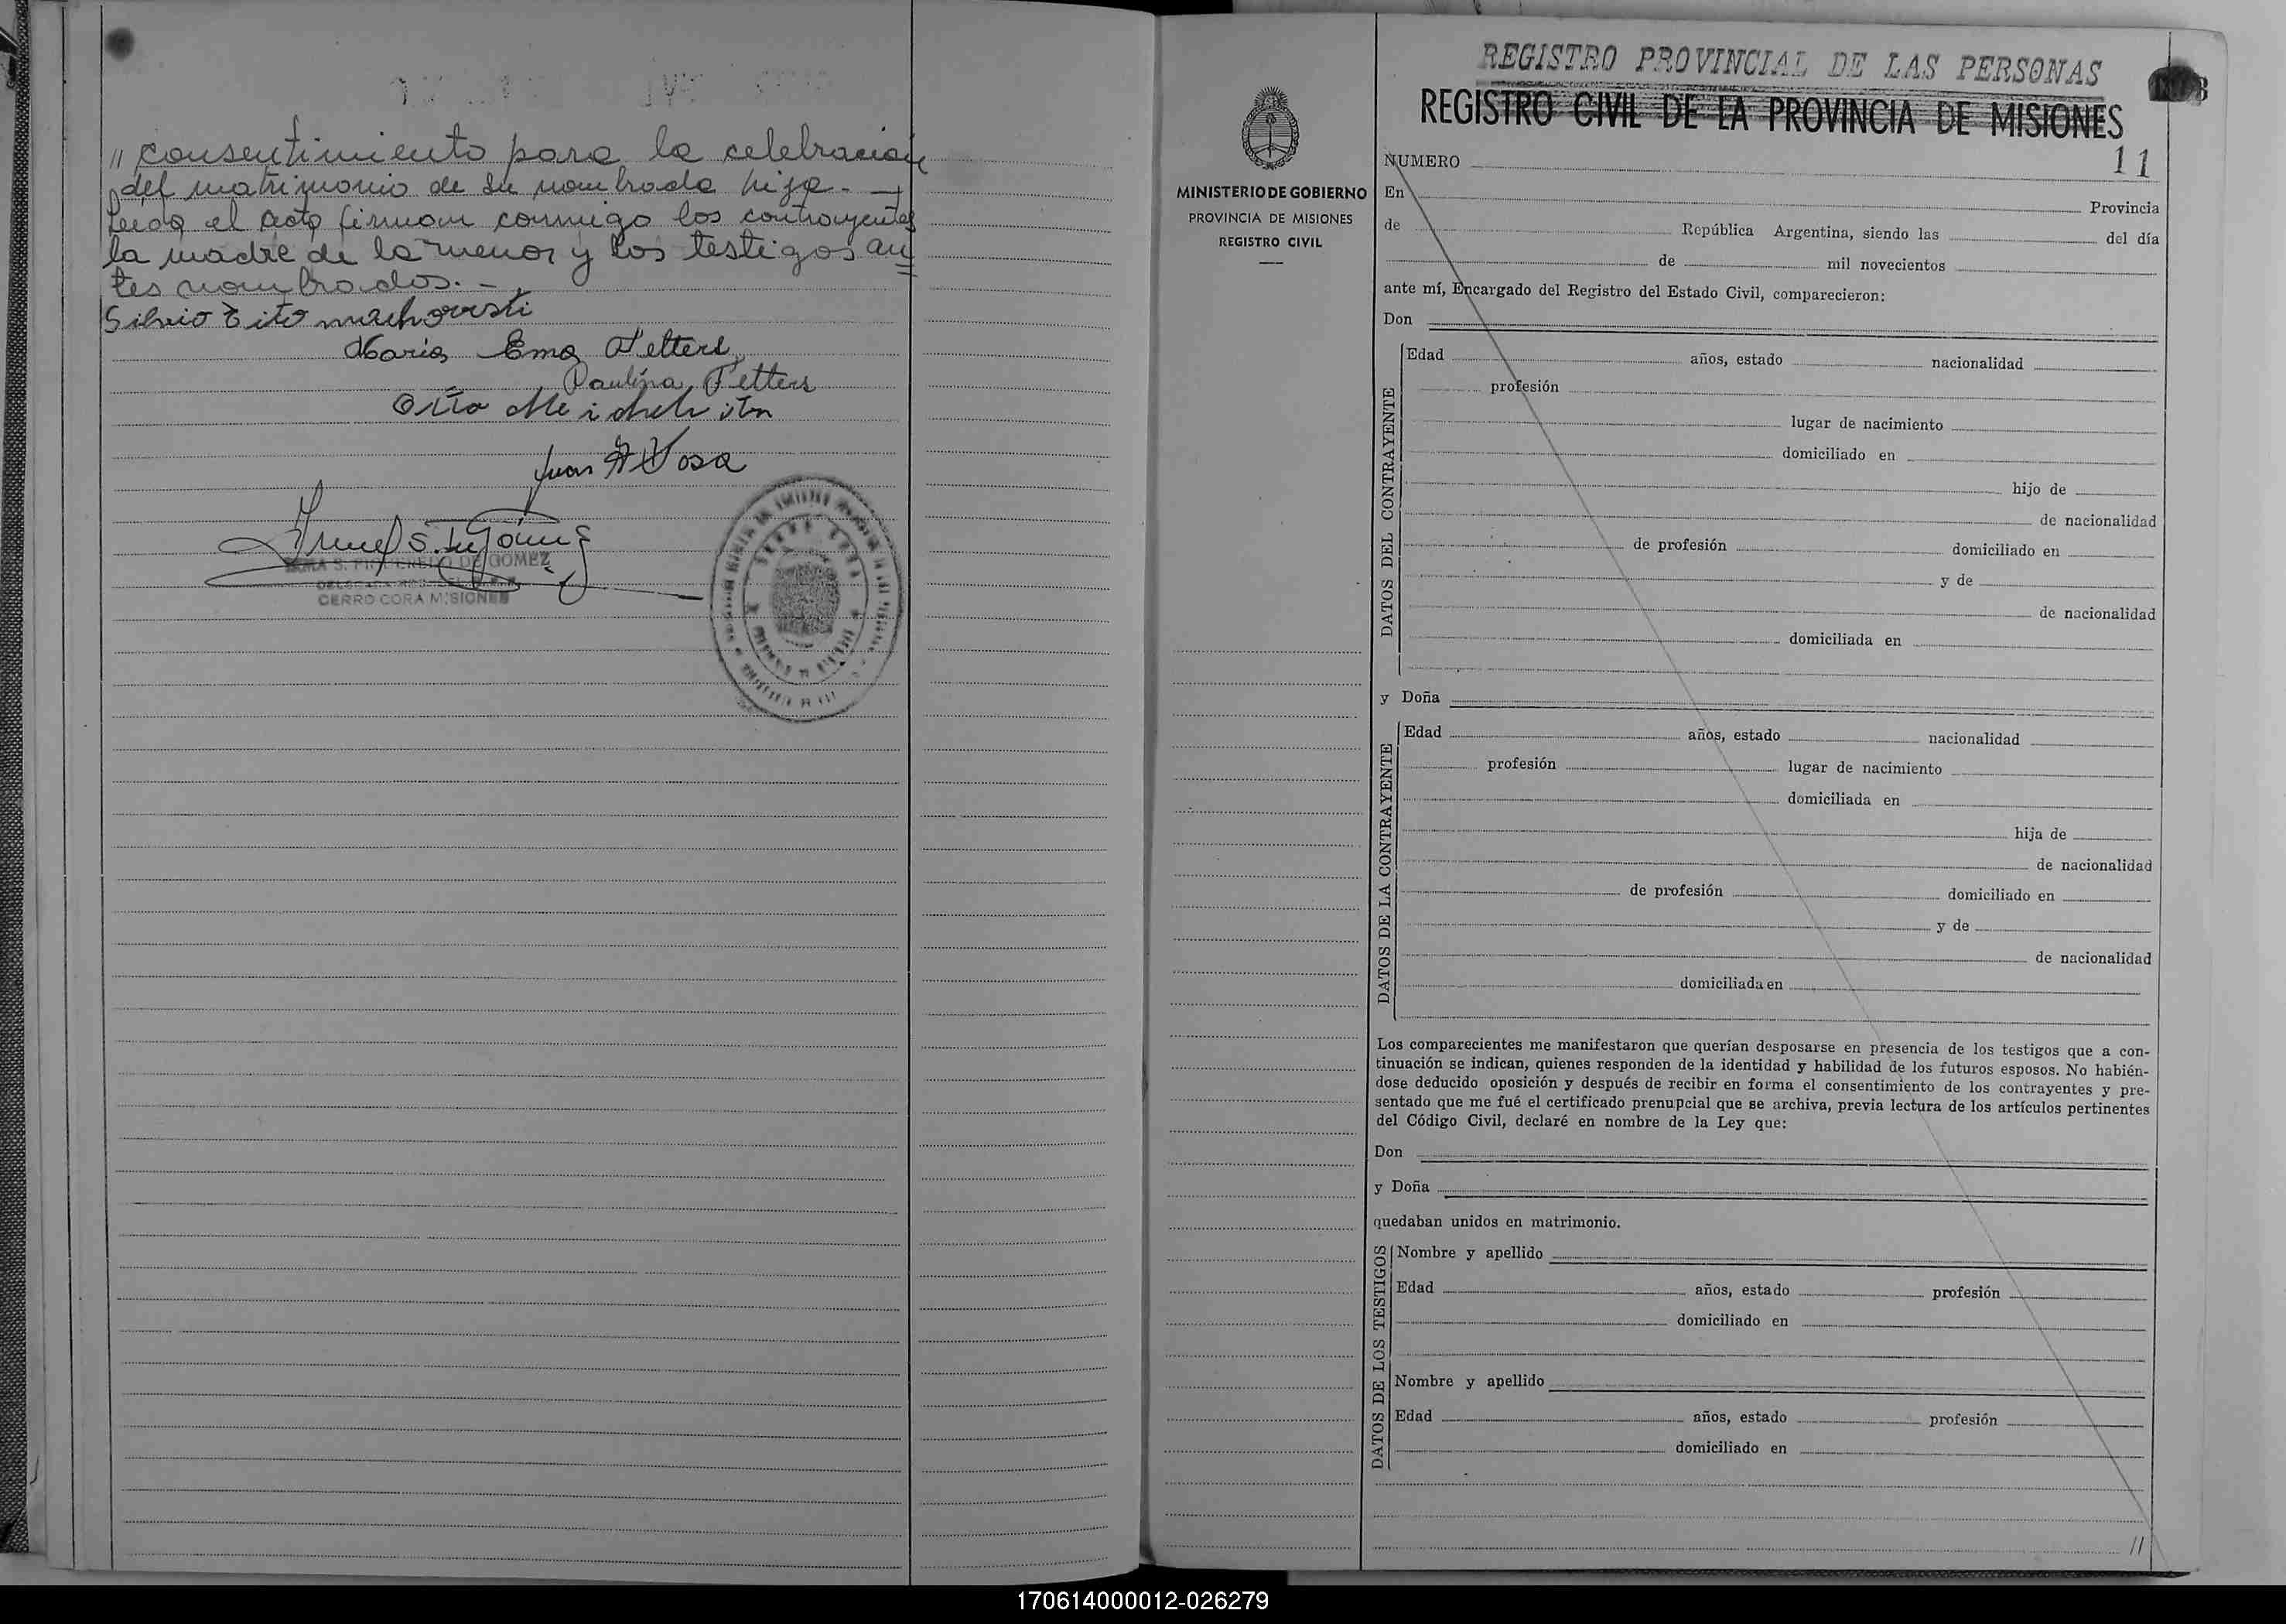 " consentimiento para la celebración
del matrimonio de su nombrada hija. —
Leída el acta firman conmigo los contrayentes
la madre de la menor y los testigos an
tes nombrados. -
Silvio Tito
Maria Ema Petters
Paulina Petters
Otto
Juan A Sosa
DE GOMEZ
CERRO CORA MISIONES
REGISTRO PROVINCIAL DE LAS PERSONAS
REGISTRO CIVIL DE LA PROVINCIA DE MISIONES
MINISTERIO DE GOBIERNO
PROVINCIA DE MISIONES
REGISTRO CIVIL
NUMERO 11
En Provincia
de República Argentina, siendo las del día
de mil novecientos
ante mí, Encargado del Registro del Estado Civil, comparecieron:
Don
DATOS DEL CONTRAYENTE
Edad años, estado nacionalidad
profesión
lugar de nacimiento
domiciliado en
hijo de
de nacionalidad
de profesión domiciliado en
y de
de nacionalidad
domiciliada en
y Doña
DATOS DE LA CONTRAYENTE
Edad años, estado nacionalidad
profesión lugar de nacimiento
domiciliada en
hija de
de nacionalidad
de profesión domiciliado en
y de
de nacionalidad
domiciliada en
Los comparecientes me manifestaron que querían desposarse en presencia de los testigos que a con-
tinuación se indican, quienes responden de la identidad y habilidad de los futuros esposos. No habién-
dose deducido oposición y después de recibir en forma el consentimiento de los contrayentes y pre-
sentado que me fué el certificado prenupcial que se archiva, previa lectura de los artículos pertinentes
del Código Civil, declaré en nombre de la Ley que:
Don
y Doña
quedaban unidos en matrimonio.
DATOS DE LOS TESTIGOS
Nombre y apellido
Edad años, estado profesión
domiciliado en
Nombre y apellido
Edad años, estado profesión
domiciliado en
//
170614000012-026279